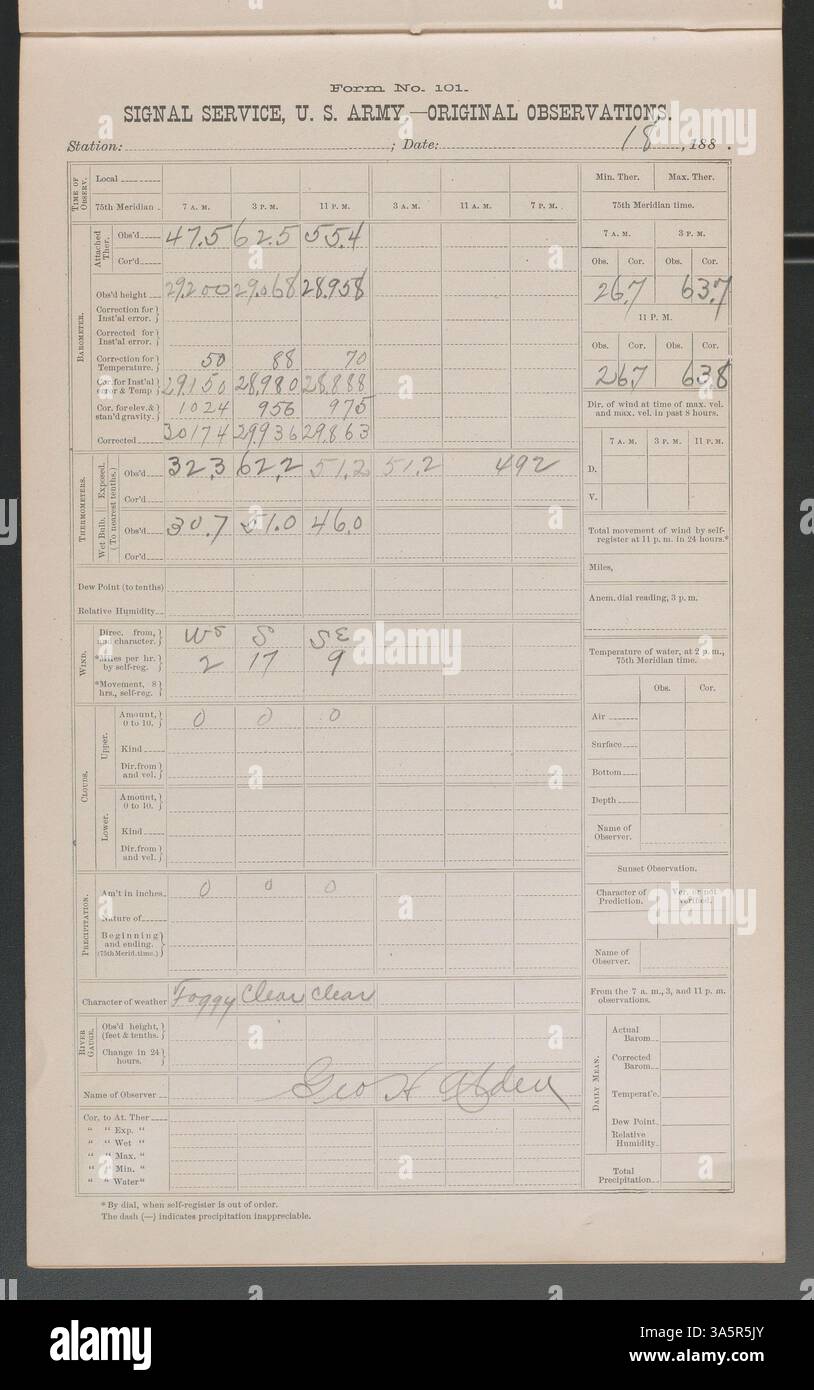 Form No. 101.
SIGNAL SERVICE, U. S. ARMY.—ORIGINAL OBSERVATIONS.
Station: ; Date: 18 , 188 .
TIME OF OBSERV.
Local
75th Meridian 7 A. M. 3 P. M. 11 P. M. 3 A. M. 11 A. M. 7 P. M.
BAROMETER.
Attached Ther.
Obs'd 47.5 62.5 55.4
Cor'd
Obs'd height 29.200 29.068 28.958
Correction for Inst'al error.
Corrected for Inst'al error.
Correction for Temperature. 50 88 70
Cor. for Inst'al error & Temp 29150 28,980 28,888
Cor. for elev. & stan'd gravity. 1024 956 975
Corrected 30174 29,936 29,863
THERMOMETERS.
(To nearest tenths.)
Exposed.
Obs'd 32.3 62.2 51.2 51.2 492
Cor'd
Wet Bulb.
Obs'd 30.7 51.0 46.0
Cor'd
Dew Point (to tenths)
Relative Humidity
WIND.
Direc. from, and character. S SE
*Miles per hr. by self-reg. 2 17 9
*Movement, 8 hrs., self-reg.
CLOUDS.
Upper.
Amount, 0 to 10. 0 0 0
Kind
Dir. from and vel.
Lower.
Amount, 0 to 10.
Kind
Dir. from and vel.
PRECIPITATION.
Am't in inches. 0 0 0
Nature of
Beginning and ending. (75th Merid. time.)
Character of weather Foggy Clear Clear
RIVER GAUGE.
Obs'd height, (feet & tenths.
Change in 24 hours.
Name of Observer Geo H Alden
Cor. to At. Ther
" " Exp. "
" " Wet "
" " Max. "
" " Min. "
" " Water "
Min. Ther. Max. Ther.
75th Meridian time.
7 A. M. 3 P. M.
Obs. Cor. Obs. Cor.
26.7 63.7
11 P. M.
Obs. Cor. Obs. Cor.
26.7 63.8
Dir. of wind at time of max. vel. and max. vel. in past 8 hours.
7 A. M. 3 P. M. 11 P. M.
D.
V.
Total movement of wind by self-register at 11 p. m. in 24 hours.*
Miles,
Anem. dial reading, 3 p. m.
Temperature of water, at 2 p. m., 75th Meridian time.
Obs. Cor.
Air
Surface
Bottom
Depth
Name of Observer.
Sunset Observation.
Character of Prediction. Ver. or not verified.
Name of Observer.
From the 7 a. m., 3, and 11 p. m. observations.
DAILY MEAN.
Actual Barom.
Corrected Barom.
Temperat'e.
Dew Point.
Relative Humidity.
Total Precipitation.
* By dial, when self-register is out of order.
The dash (—) indicates precipitation inappreciable.
alamy
Image ID: 3A5R5JY
www.alamy.com